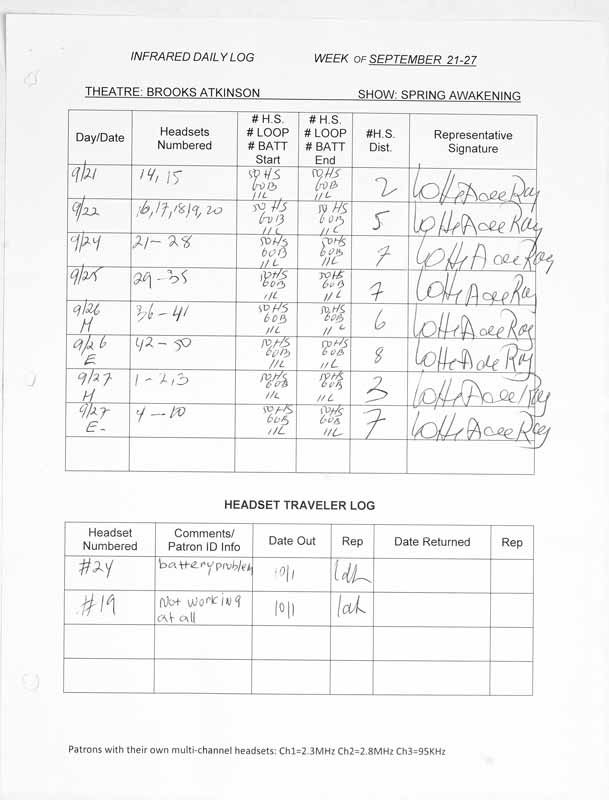 INFRARED DAILY LOG WEEK OF SEPTEMBER 21-27
THEATRE: BROOKS ATKINSON SHOW: SPRING AWAKENING
Day/Date Headsets Numbered # H.S. # LOOP # BATT Start # H.S. # LOOP # BATT End #H.S. Dist. Representative Signature
9/21 14, 15 50 HS 60B 11L 50 HS 60B 11L 2
9/22 16,17,18,19,20 50 HS 60B 11L 50 HS 60B 11L 5
9/24 21-28 50HS 60B 11L 50HS 60B 11L 7
9/25 29-35 50HS 60B 11L 50HS 60B 11L 7
9/26 M 36-41 50HS 60B 11L 50HS 60B 11L 6
9/26 E 42-50 50HS 60B 11L 50HS 60B 11L 8
9/27 M 1-2,3 50HS 60B 11L 50HS 60B 11L 3
9/27 E- 4-10 50HS 60B 11L 50HS 60B 11L 7
HEADSET TRAVELER LOG
Headset Numbered Comments/ Patron ID Info Date Out Rep Date Returned Rep
#24 battery problem 10/1
#19 Not working at all 10/1
Patrons with their own multi-channel headsets: Ch1=2.3MHz Ch2=2.8MHz Ch3=95KHz